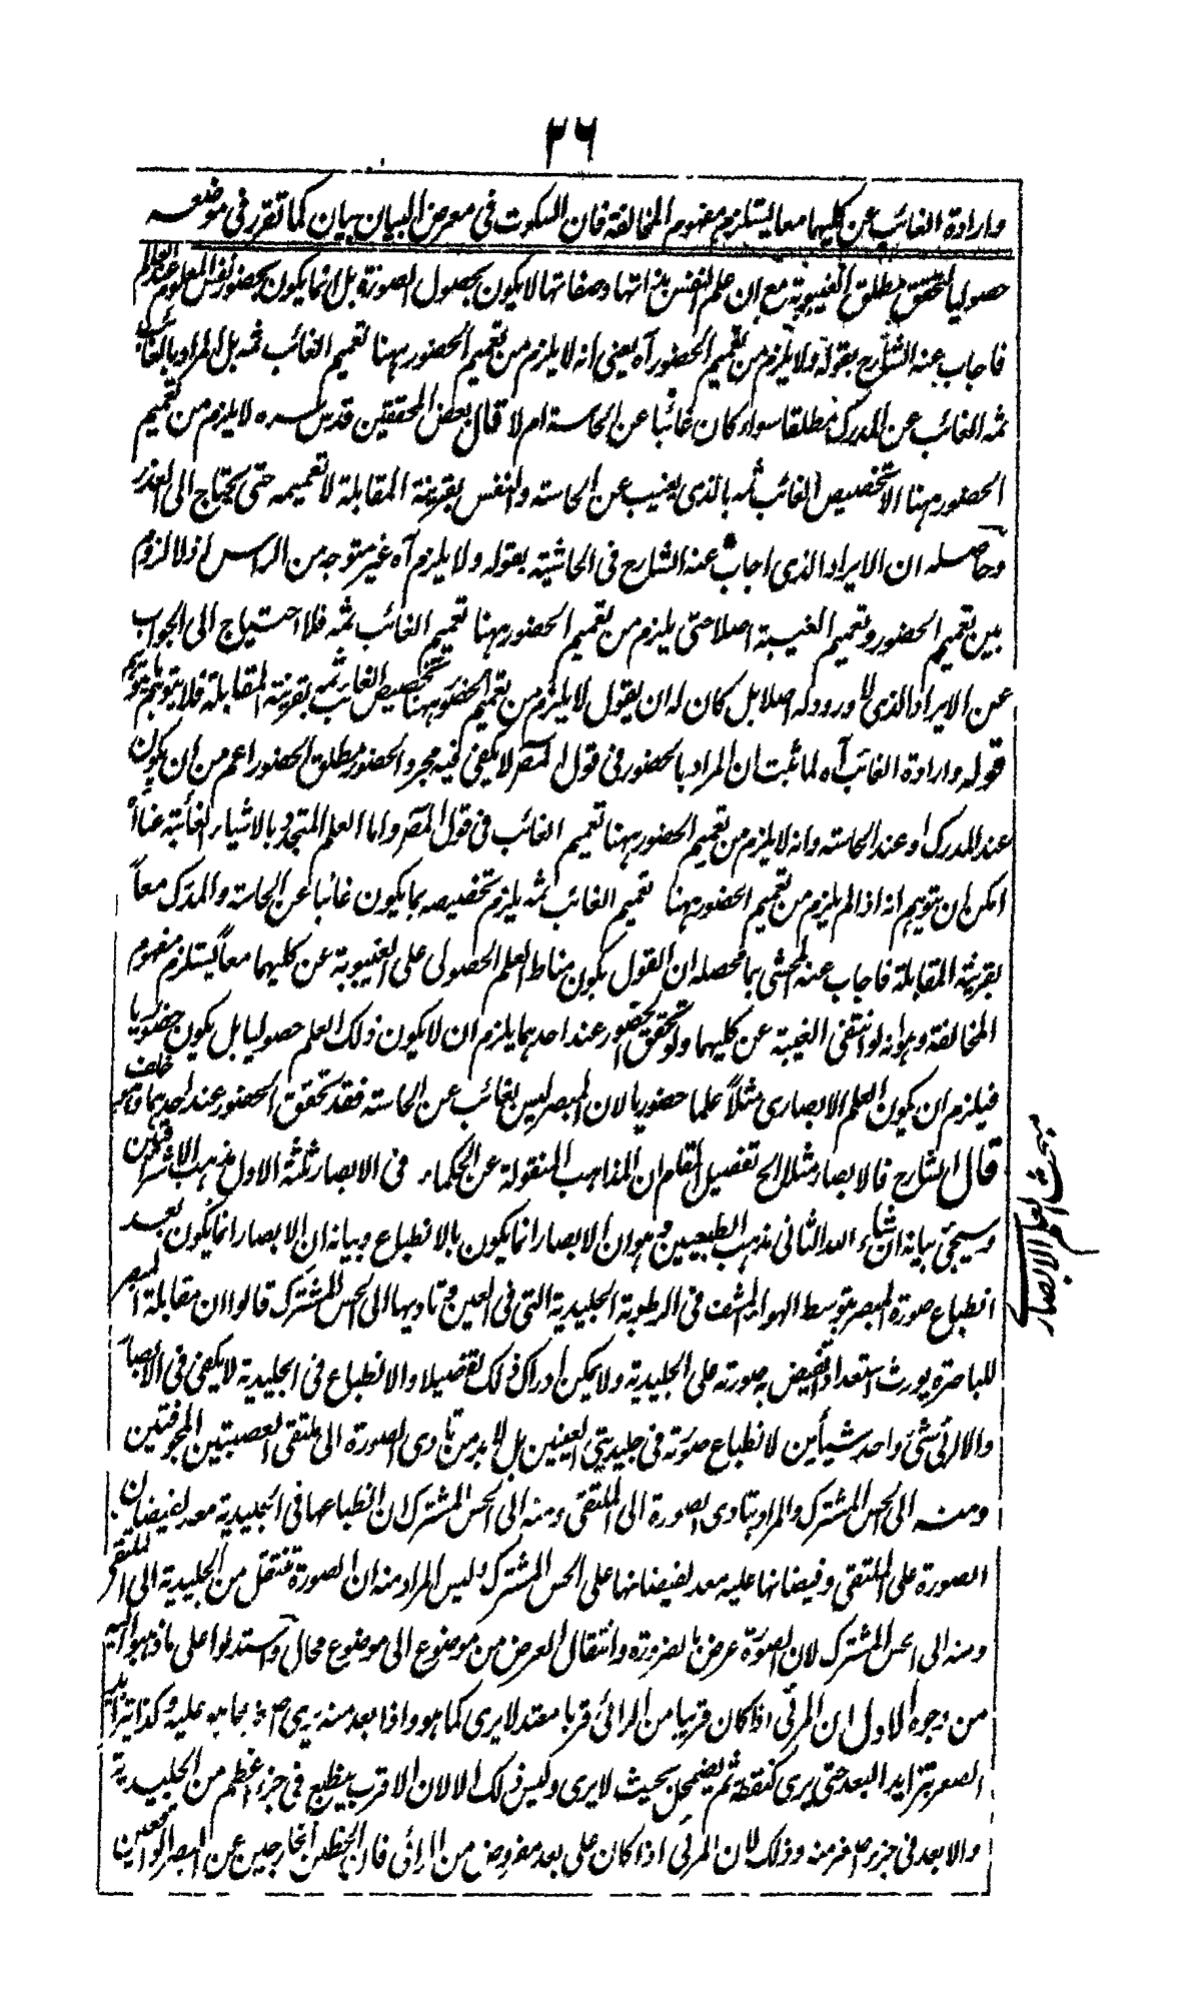 ٢٦
وارادة الغائب عن كليهما معا يستلزم مفهوم المخالفة فان السكوت فى معرض البيان بيان كما تقرر فى موضعه
حصوليا لتحقق مطلق الغيبوبة مع ان علم النفس بذاتها وصفاتها لا يكون بحصول الصورة بل انما يكون بحضور نفس المعلوم عند العالم
فاجاب عنه الشارح بقوله ولا يلزم من تعميم الحضور آه يعنى انه لا يلزم من تعميم الحضور ههنا تعميم الغائب ثمه بل المراد بالغائب
ثمه الغائب عن المدرك مطلقا سواء كان غائبا عن الحاسة ام لا قال بعض المحققين قدس سره لا يلزم من تعميم
الحضور ههنا الا تخصيص الغائب ثمه بالذى يغيب عن الحاسته والنفس بقرينة المقابلة لا تعميمه حتى يحتاج الى العذر
وحاصله ان الايراد الذى اجاب عنه الشارح فى الحاشية بقوله ولا يلزم آه غير متوجه من الراس اذ لا لزوم
بين تعميم الحضور وتعميم الغيبة اصلا حتى يلزم من تعميم الحضور ههنا تعميم الغائب ثمه فلا احتياج الى الجواب
عن الايراد الذى لا ورود له اصلا بل كان له ان يقول لا يلزم من تعميم الحضور ههنا تخصيص الغائب ثمه بقرينة المقابلة فلا يتوهم
قوله وارادة الغائب آه لما ثبت ان المراد بالحضور فى قول المصر لا يكفى فيه مجرد الحضور مطلق الحضور اعم من ان يكون
عند المدرك او عند الحاسته وانه لا يلزم من تعميم الحضور ههنا تعميم الغائب فى قول المصر واما العلم المتجدد بالاشياء الغائبة عنا
امكن ان يتوهم انه اذا لم يلزم من تعميم الحضور ههنا تعميم الغائب ثمه يلزم تخصيصه بما يكون غائبا عن الحاسته والمدرك معاً
بقرينة المقابلة فاجاب عنه المحشى بما محصله ان القول بكون مناط العلم الحصولى على الغيبوبة عن كليهما معاً يستلزم مفهوم
المخالفة وهو انه لو انتفى الغيبة عن كليهما ولو تحقق الحضور عند احدهما يلزم ان لا يكون ذلك العلم حصوليا بل يكون حضوريا
فيلزم ان يكون العلم الابصارى مثلاً علما حضوريا لان المبصر ليس بغائب عن الحاسته فقد تحقق الحضور عند احدهما خلف
قال الشارح فالابصار مثلا الخ تفصيل المقام ان المذاهب المنقولة عن الحكماء فى الابصار ثلثة الاول مذهب الاشراقيين
وسيجئ بيانه انشاء الله الثانى مذهب الطبيعيين وهو ان الابصار انما يكون بالانطباع وبيانه ان الابصار انما يكون بعد
انطباع صورة المبصر بتوسط الهواء المشف فى الرطوبة الجليدية التى فى العين وتاديها الى الحس المشترك قالوا ان مقابلة المبصر
للباصرة يورث استعدادا تفيض به صورته على الجليدية ولا يمكن ادراك ذلك تفصيلا والانطباع فى الجليدية لا يكفى فى الابصار
والا لرئى شئ واحد شيأين لانطباع صورته فى جليديتى العينين بل لا بد من تادى الصورة الى ملتقى العصبتين المجوفتين
ومنه الى الحس المشترك والمراد بتادى الصورة الى الملتقى ومنه الى الحس المشترك ان انطباعها فى الجليدية معد لفيضان
الصورة على الملتقى وفيضانها عليه معد لفيضانها على الحس المشترك وليس المراد منه ان الصورة تنتقل من الجليدية الى الملتقى
ومنه الى الحس المشترك لان الصورة عرض بالضرورة وانتقال العرض من موضوع الى موضوع محال واستدلوا على ما ذهبوا اليه
من وجوه الاول ان المرئى اذا كان قريبا من الرائى قربا معتدلا يرى كما هو واذا بعد منه يرى اصغر مما هو عليه وكذا يتزايد
الصغر بتزايد البعد حتى يرى كنقطة ثم يضمحل بحيث لا يرى وليس ذلك الا لان الاقرب ينطبع فى جزء اعظم من الجليدية
والابعد فى جزء اصغر منه وذلك لان المرئى اذا كان على بعد مفروض من الرائى فان الخطين الخارجين عن البصر الواقعين